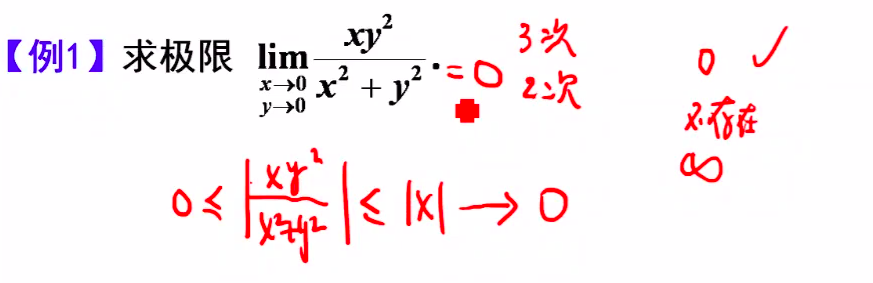 【例1】求极限 lim x→0 y→0 xy²/(x² + y²). = 0 3次 2次
0 ✓
不存在
∞
0 ≤ |xy²/(x²+y²)| ≤ |x| → 0